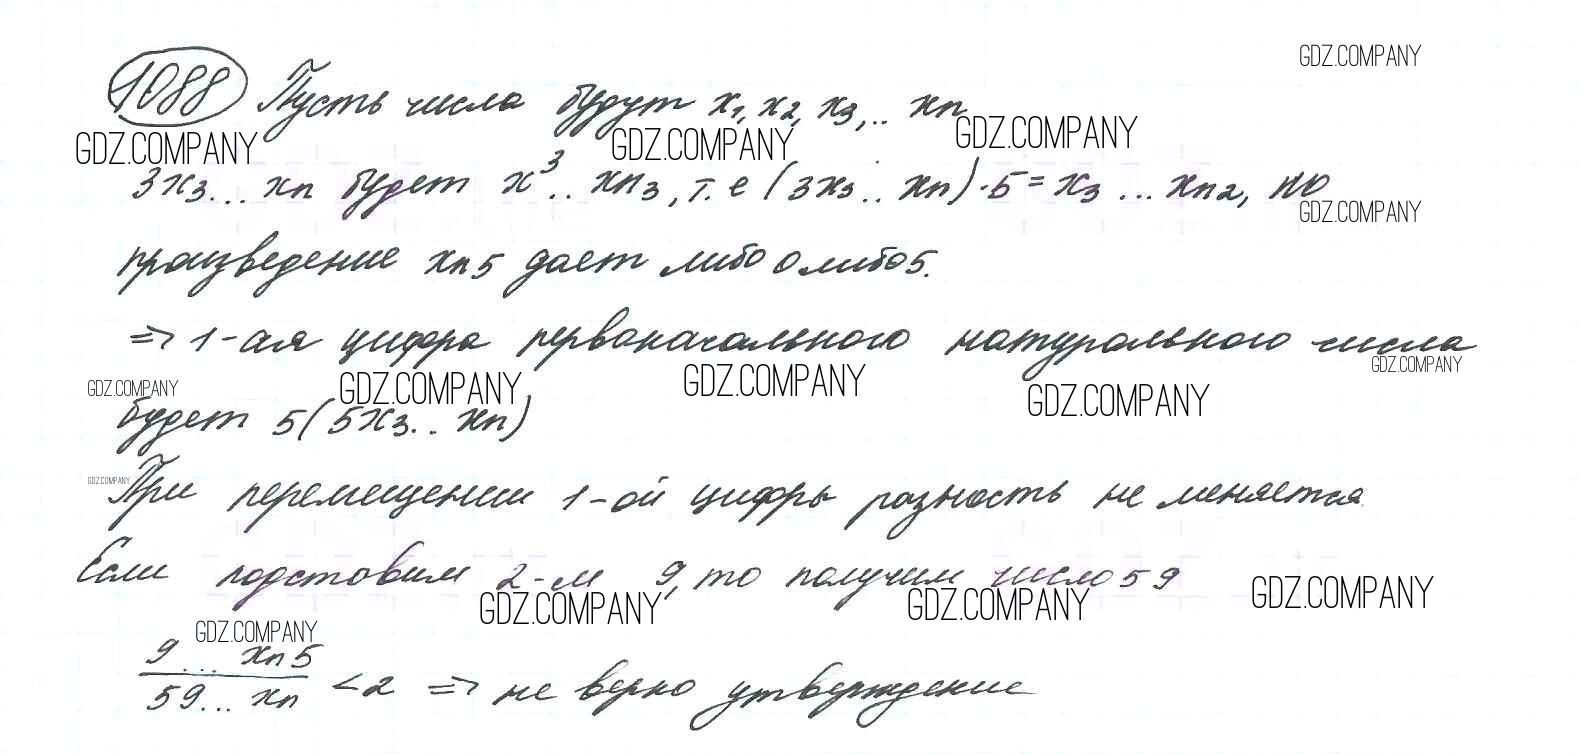 GDZ.COMPANY
1088 Пусть числа будут x₁, x₂, x₃,.. xₙ
GDZ.COMPANY GDZ.COMPANY GDZ.COMPANY
3x₃... xₙ будет x³.. xₙ₃, т.е (3x₃.. xₙ)·5=x₃ ... xₙ₂, но
GDZ.COMPANY
произведение xₙ5 дает либо 0 либо 5.
=> 1-ая цифра первоначального натурального числа
GDZ.COMPANY GDZ.COMPANY GDZ.COMPANY GDZ.COMPANY GDZ.COMPANY
будет 5(5x₃... xₙ)
GDZ.COMPANY
При перемещении 1-ой цифры разность не меняется.
Если подставим 2-м 9, то получим число 59
GDZ.COMPANY GDZ.COMPANY GDZ.COMPANY
GDZ.COMPANY
9... xₙ5
59... xₙ <2 => не верно утверждение